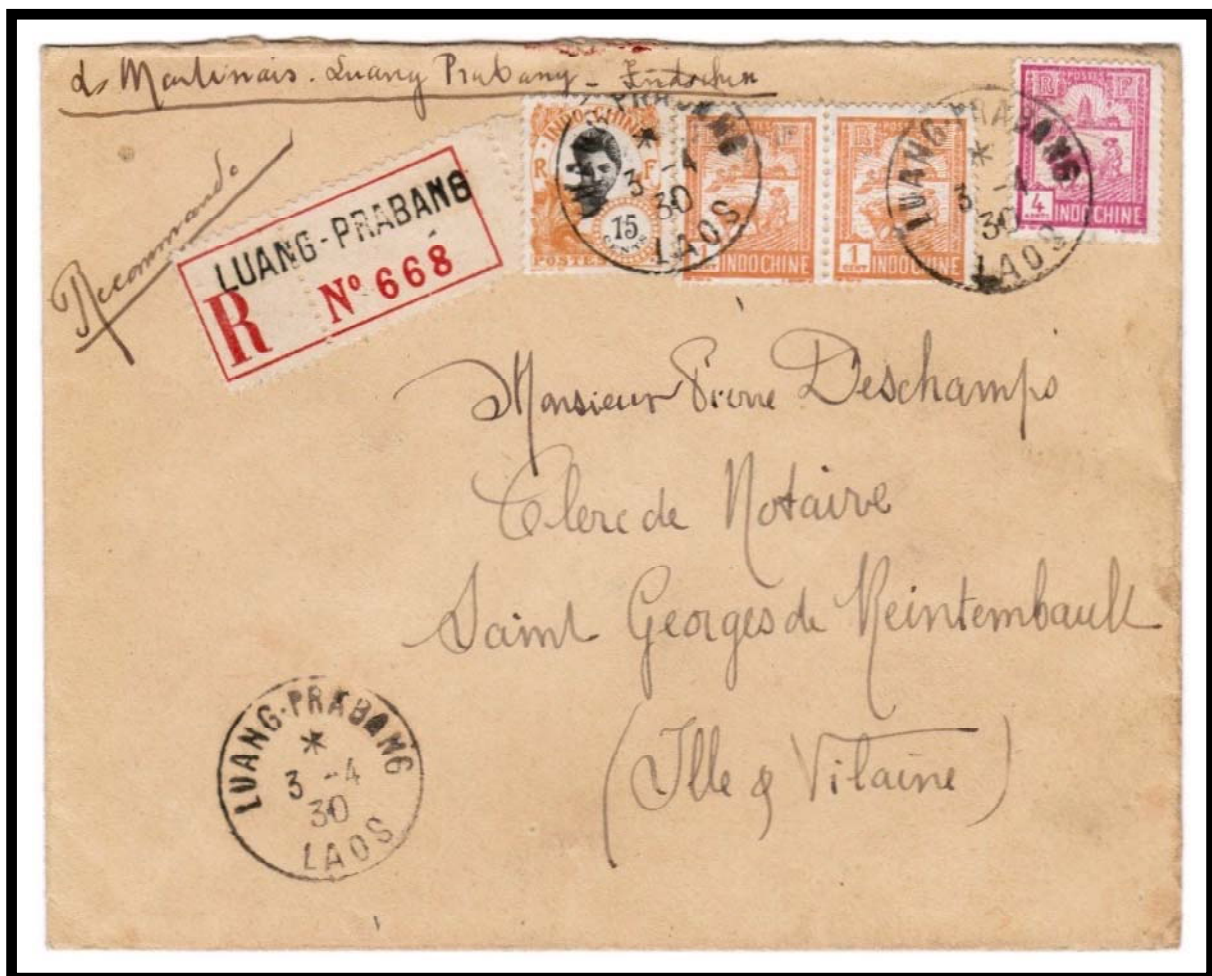 Martinais. Luang Prabang - Indochine
Recommandé
LUANG-PRABANG
R N° 668
INDO-CHINE
R F
15
CENTS
POSTES
R F
1
CENT INDOCHINE
R F
1
CENT INDOCHINE
POSTES
R F
4
CENTS INDOCHINE
PRABANG
3 -4
30
LAOS
LUANG-PRABANG
*
3 -4
30
LAOS
Monsieur Pierre Deschamps
Clerc de Notaire
Saint Georges de Reintembault
(Ille & Vilaine)
LUANG-PRABANG
*
3 -4
30
LAOS